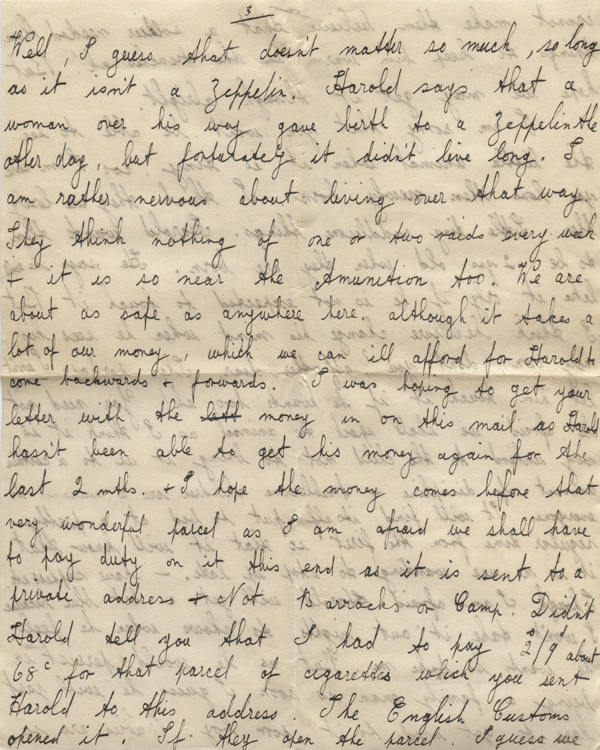 3
Well, I guess that doesn't matter so much, so long
as it isn't a Zeppelin. Harold says that a
woman over his way gave birth to a Zeppelin the
other day, but fortunately it didn't live long. I
am rather nervous about living over that way.
They think nothing of one or two raids every week
+ it is so near the Amunition too. We are
about as safe as anywhere here, although it takes a
lot of our money, which we can ill afford for Harold to
come backwards + forwards. I was hoping to get your
letter with the left money in on this mail as Harold
hasn't been able to get his money again for the
last 2 mths. + I hope the money comes before that
very wonderful parcel as I am afraid we shall have
to pay duty on it this end as it is sent to a
private address + Not Barracks or Camp. Didn't
Harold tell you that I had to pay 2s/9d about
68c for that parcel of cigarettes which you sent
Harold to this address. The English Customs
opened it. If they open the parcel I guess we